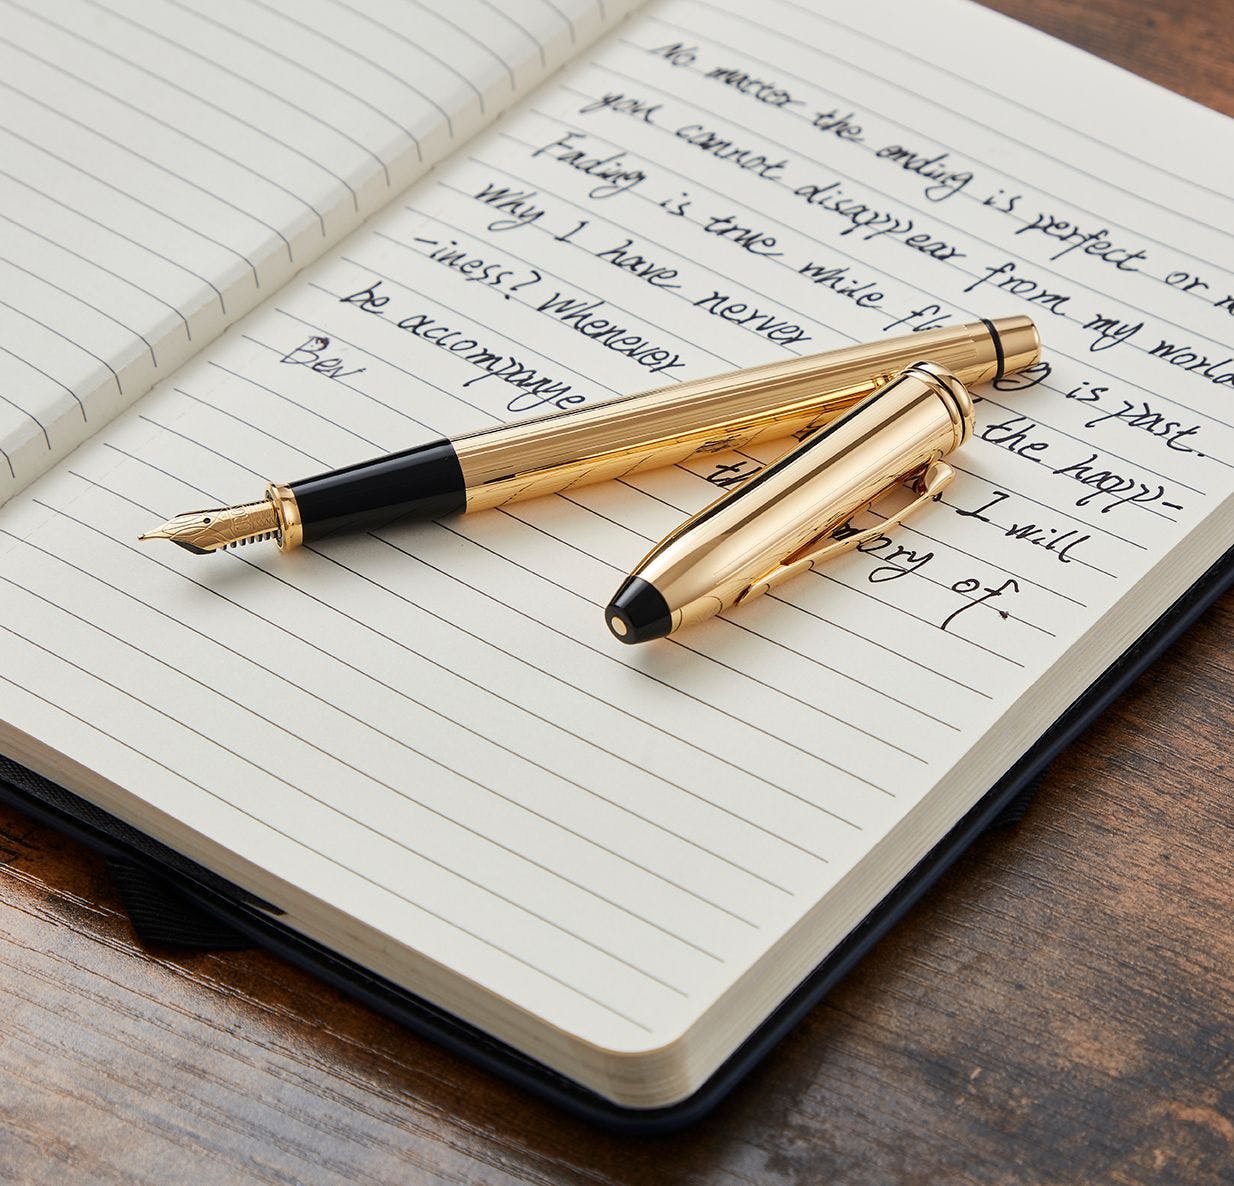 No matter the ending is perfect or
you cannot disappear from my world
Fading is true while is past.
Why I have nerver the happ-
-iness? Whenever I will
be accompanye of.
Bev